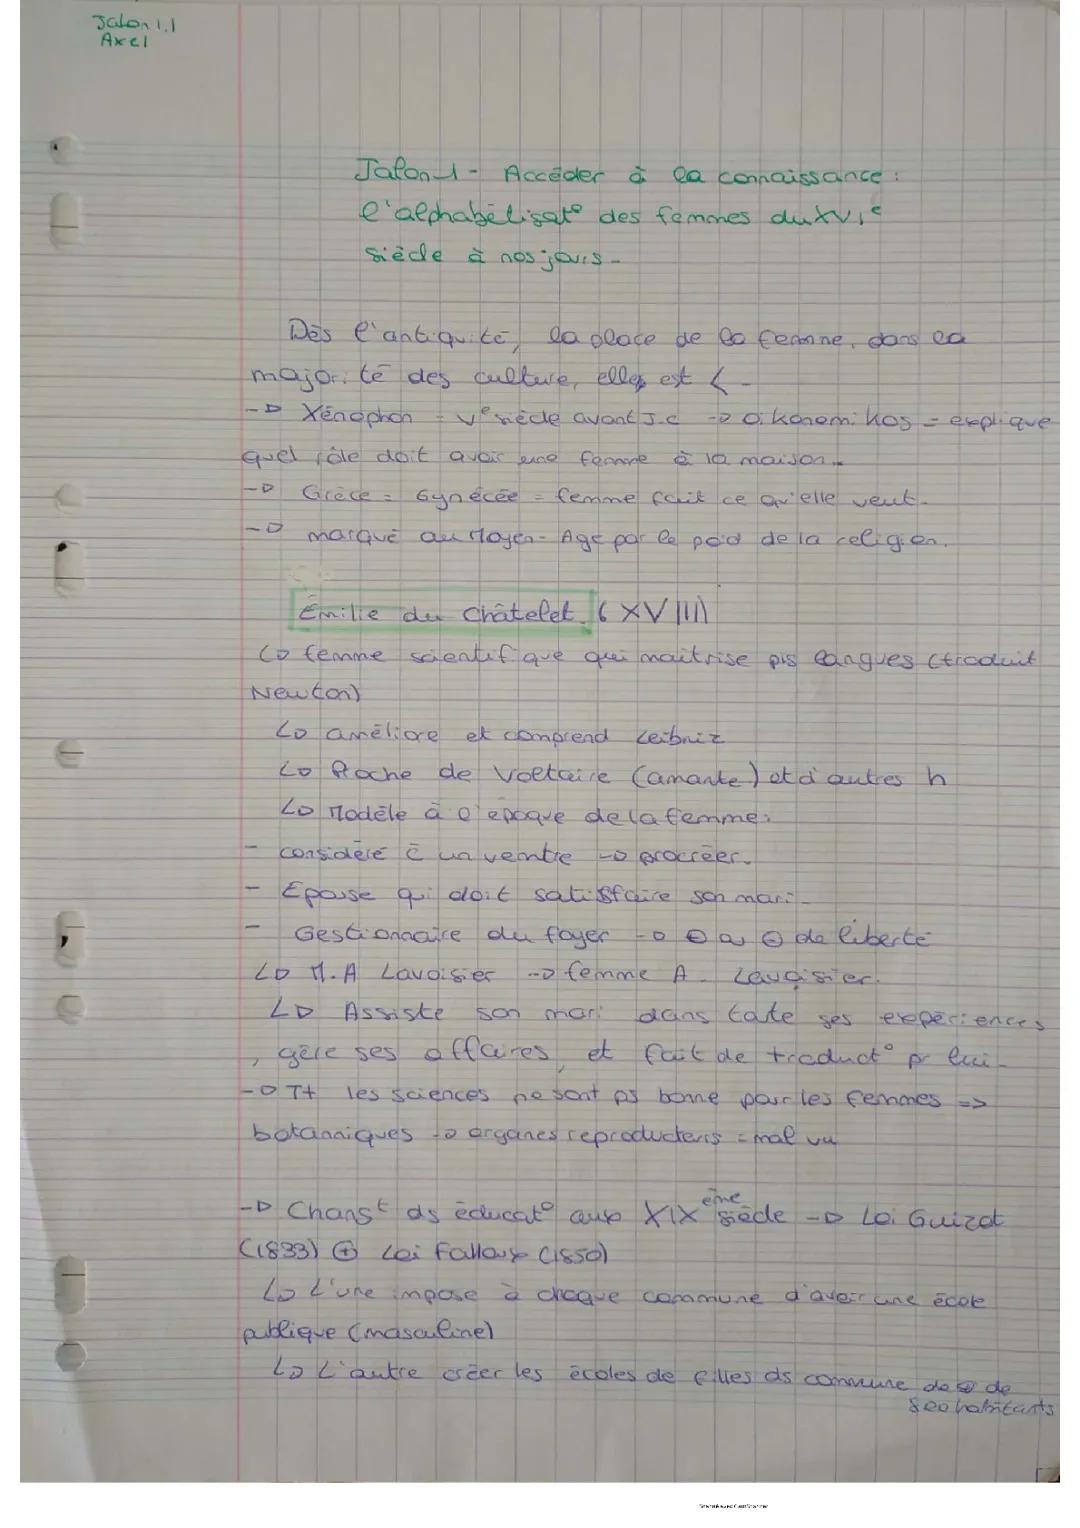 Jalon 1.1
Axel
Jalon 1 - Accéder à la connaissance :
l'alphabétisat° des femmes du XVIe
siècle à nos jours -
Dès l'antiquité, la place de la femme, dans la
majorité des culture, elles est < -
-> Xénophon = Ve siècle avant J.C -> Oikonomikos = explique
quel rôle doit avoir une femme à la maison -
-> Grèce = Gynécée = femme fait ce qu'elle veut -
-> marqué au Moyen-Age par le poid de la religion.
Emilie du Châtelet (XVIII)
↳ femme scientifique qui maitrise pls langues (traduit
Newton)
↳ améliore et comprend Leibniz
↳ Proche de Voltaire (amante) et d'autres h
↳ Modèle à l'époque de la femme :
- considéré c̄ un ventre -> procréer.
- Epouse qui doit satisfaire son mari -
- Gestionnaire du foyer -> ⊕ ou ⊖ de liberté
↳ M.A Lavoisier -> femme A. Lavoisier.
↳ Assiste son mari dans toute ses expériences
, gère ses affaires, et fait de traduct° pr lui -
-> Tt les sciences ne sont ps bonne pour les femmes =>
botanniques -> organes reproducteurs = mal vu
-> Changt ds éducat° aux XIXème siècle -> Loi Guizot
(1833) ⊕ Loi Falloux (1850)
↳ L'une impose à chaque commune d'avoir une école
publique (masculine)
↳ L'autre créer les écoles de filles ds commune de ⊕ de
800 habitants
Scanné avec CamScanner